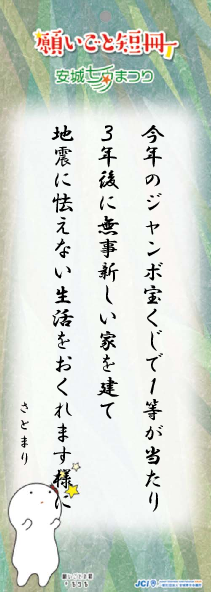 願いごと短冊
安城七夕まつり
今年のジャンボ宝くじで1等が当たり
3年後に無事新しい家を建て
地震に怯えない生活をおくれます様に
さとまり
JCI